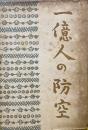 一億人の防空